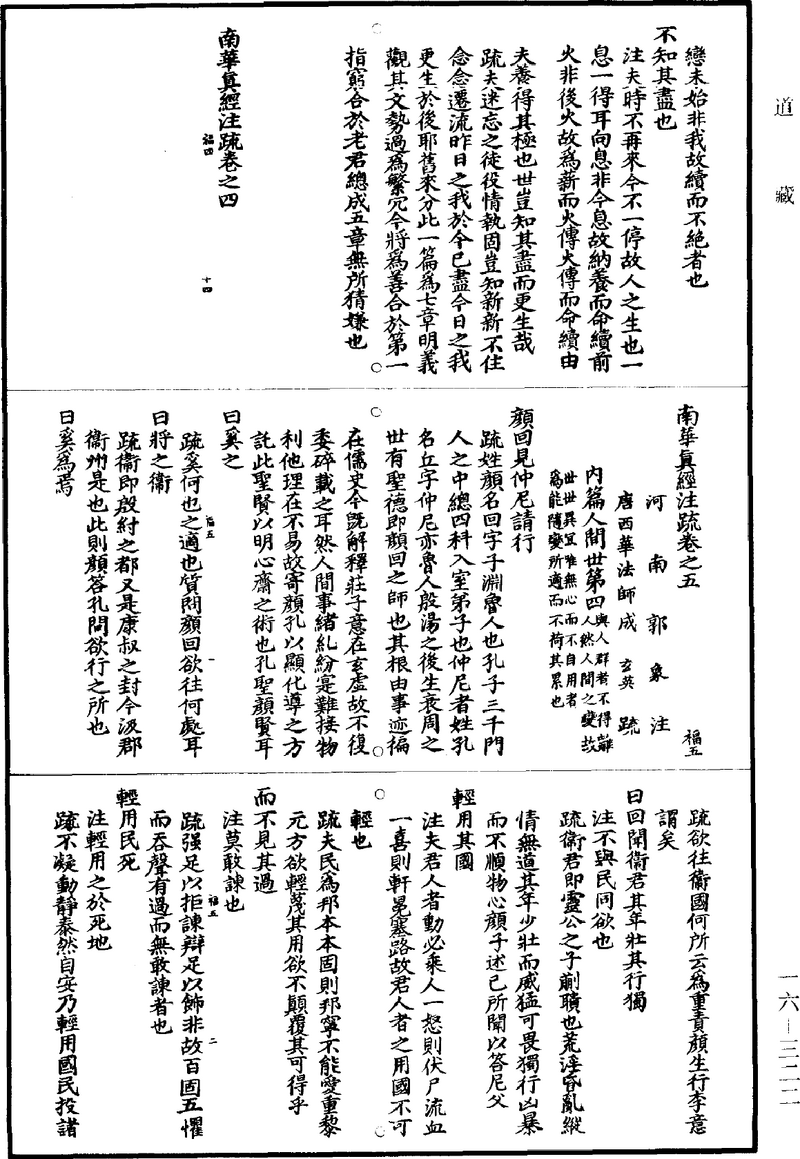 道藏
戀未始非我故續而不絕者也
不知其盡也
注夫時不再來今不一停故人之生也一
息一得耳向息非今息故納養而命續前
火非後火故為薪而火傳火傳而命續由
夫養得其極也世豈知其盡而更生哉
疏夫迷忘之徒役情執固豈知新新不住
念念遷流昨日之我於今已盡今日之我
更生於後耶舊來分此一篇為七章明義
觀其文勢過為繁冗今將為善合於第一
指窮合於老君總成五章無所猜嫌也
南華真經注疏卷之四
福四
十四
南華真經注疏卷之五
福五
河南郭象注
唐西華法師成玄英疏
內篇人間世第四
與人群者不得離
人然人間之變故
世世異宜唯無心而不自用者
為能隨變所適而不荷其累也
顏回見仲尼請行
疏姓顏名回字子淵魯人也孔子三千門
人之中總四科入室弟子也仲尼者姓孔
名丘字仲尼亦魯人殷湯之後生衰周之
世有聖德即顏回之師也其根由事迹徧
在儒史今既解釋莊子意在玄虛故不復
委碎載之耳然人間事緒糺紛寔難接物
利他理在不易故寄顏孔以顯化導之方
託此聖賢以明心齋之術也孔聖顏賢耳
曰奚之
疏奚何也之適也質問顏回欲往何處耳
福五
一
曰將之衛
疏衛即殷紂之都又是康叔之封今汲郡
衛州是也此則顏答孔問欲行之所也
曰奚為焉
疏欲往衛國何所云為重責顏生行李意
謂矣
曰回聞衛君其年壯其行獨
注不與民同欲也
疏衛君即靈公之子蒯聵也荒淫昏亂縱
情無道其年少壯而威猛可畏獨行凶暴
而不順物心顏子述己所聞以答尼父
輕用其國
注夫君人者動必乘人一怒則伏尸流血
一喜則軒冕塞路故君人者之用國不可
輕也
疏夫民為邦本本固則邦寧不能愛重黎
元方欲輕蔑其用欲不顛覆其可得乎
而不見其過
注莫敢諫也
疏强足以拒諫辯足以飾非故百固五懼
福五
二
而吞聲有過而無敢諫者也
輕用民死
注輕用之於死地
疏不凝動靜泰然自安乃輕用國民投諸
一六—三二二